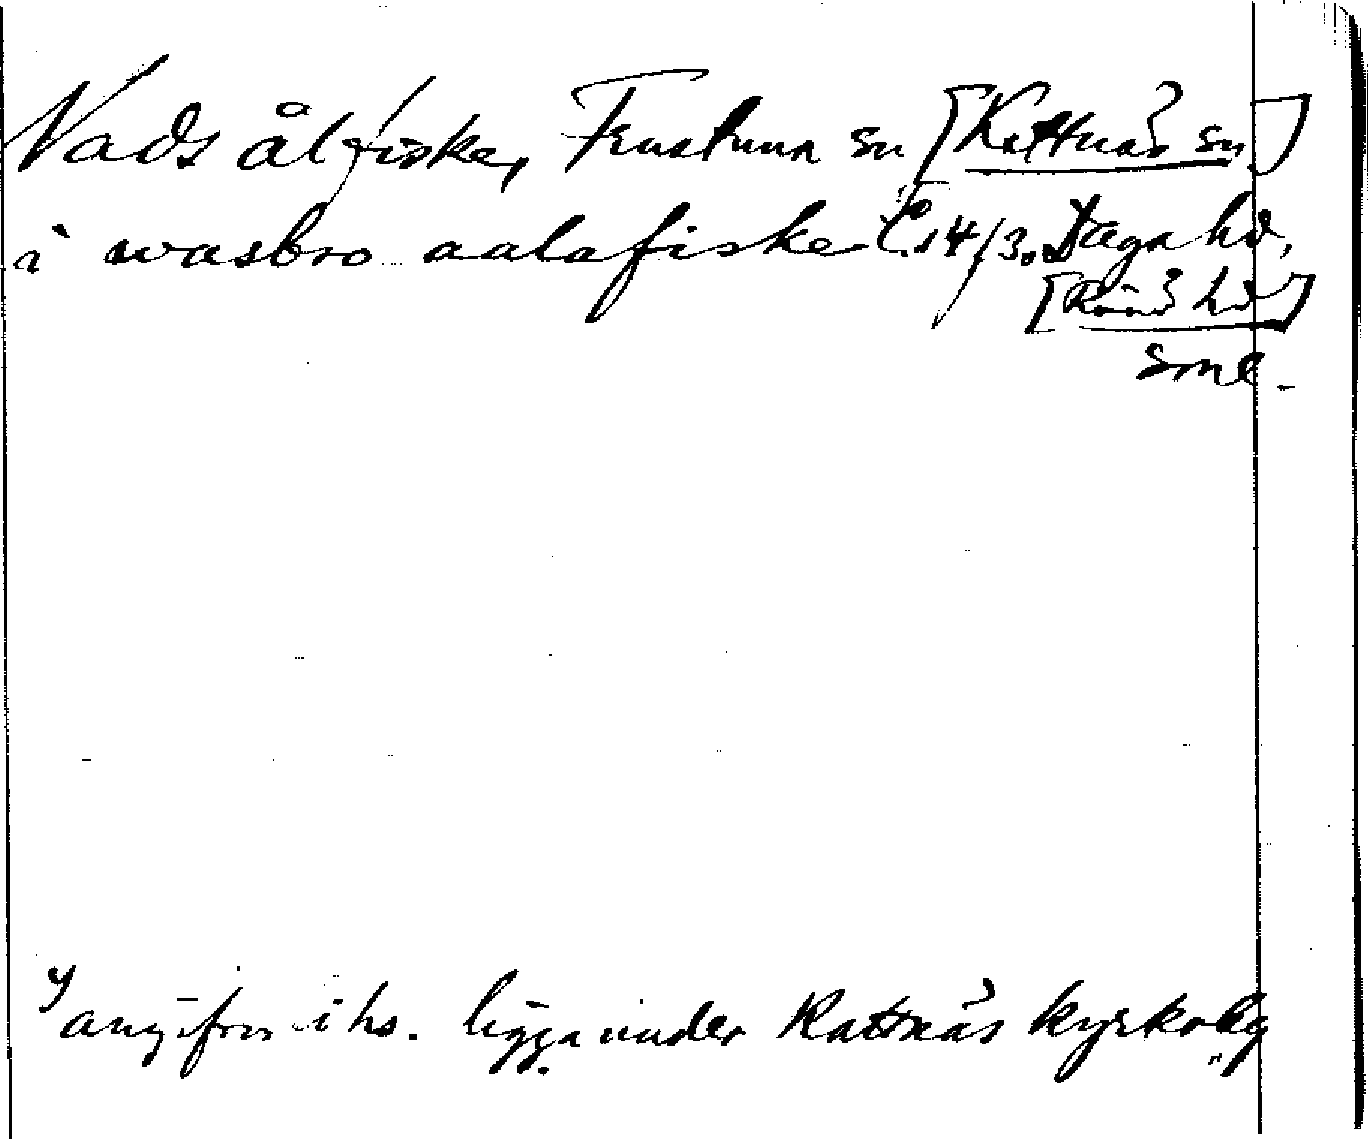 Vads ålfiske, Frustuna sn [Kattnäs sn]
i wasbro aalafiske 14/3. Daga hd,
[Rönö hd]
Sml.
angifves i hs. ligga under Kattnäs kyrkobg